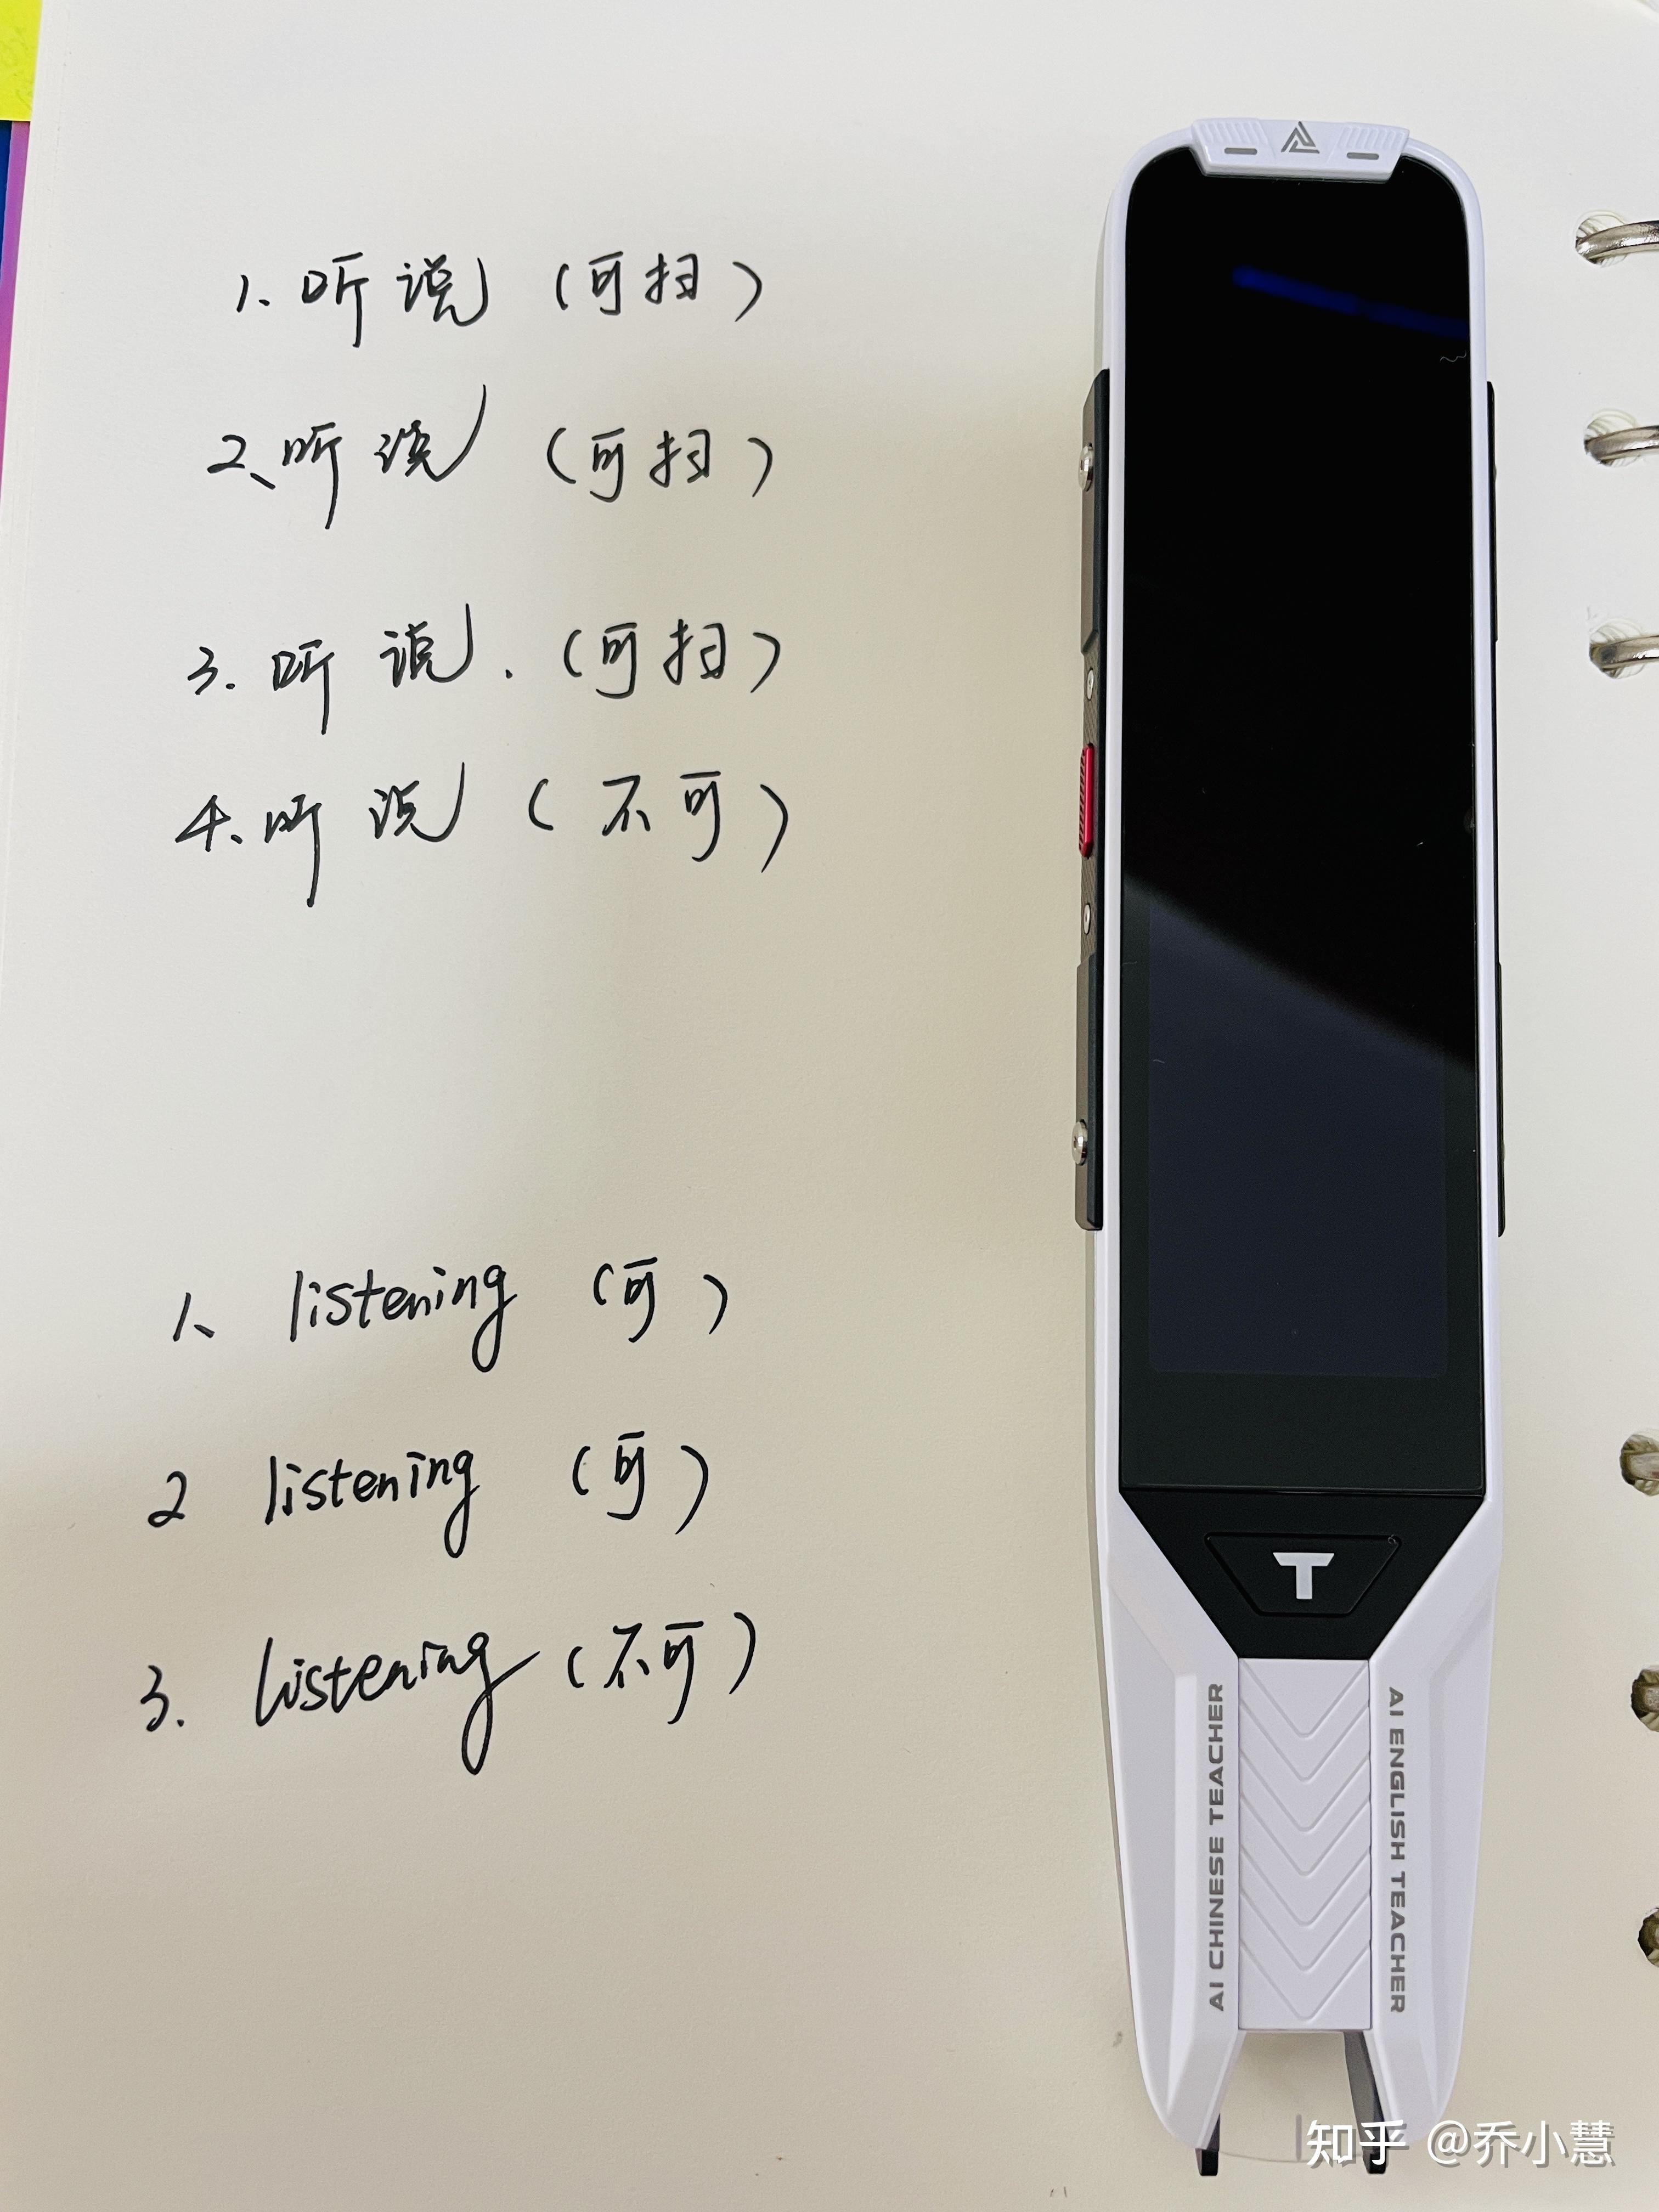 1、听说（可扫）
2、听说（可扫）
3.听说.（可扫）
4、听说（不可）
1、listening（可）
2 listening（可）
3. listening（不可）
T
AI CHINESE TEACHER
AI ENGLISH TEACHER
知乎 @乔小慧